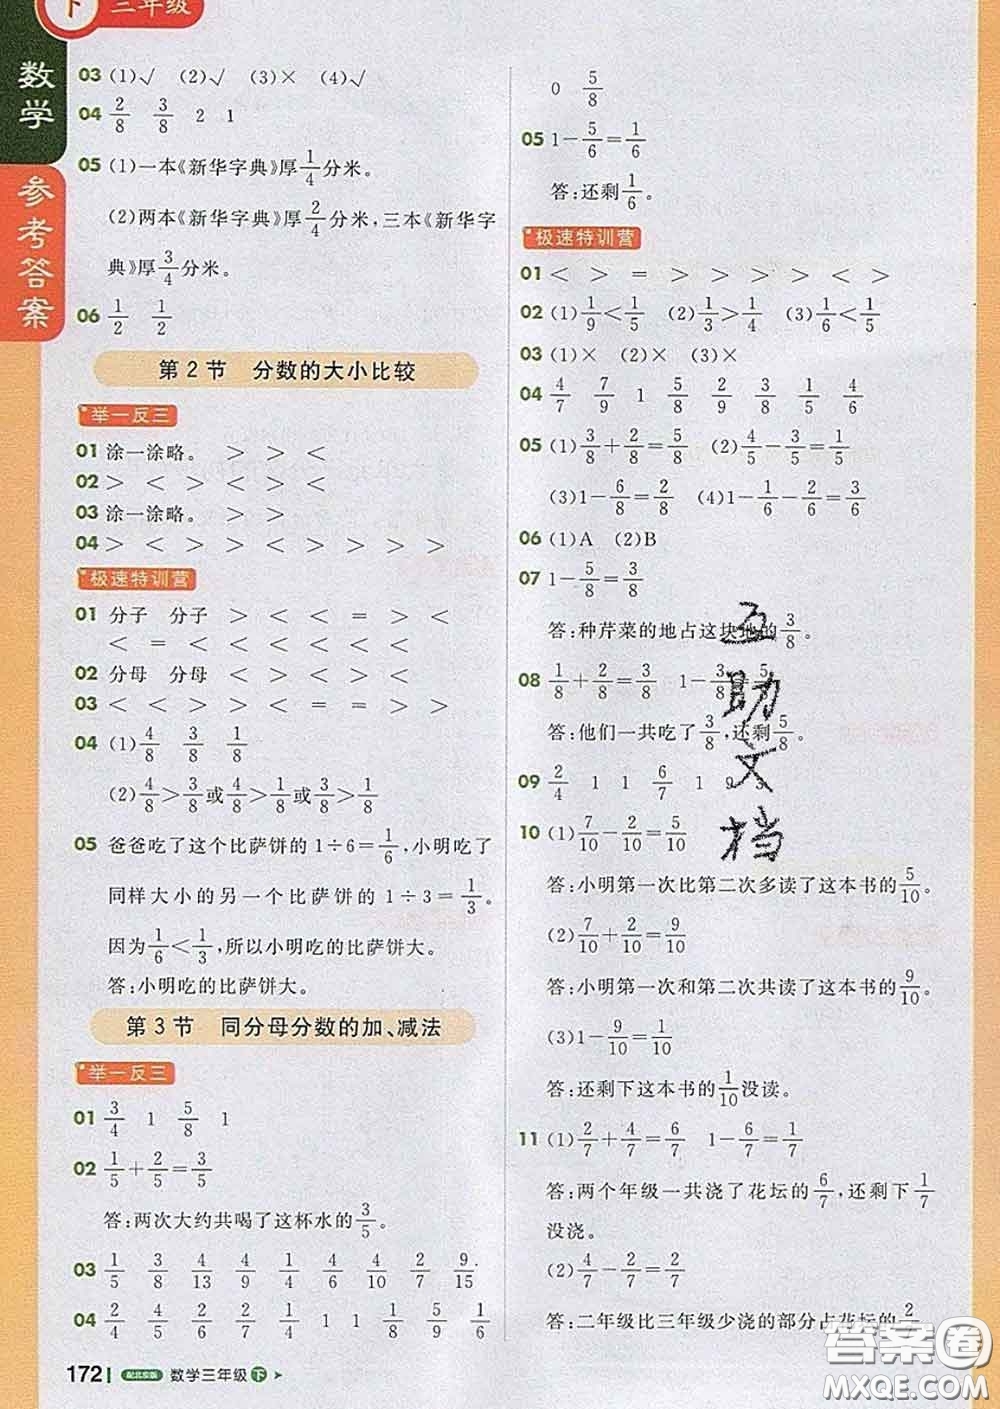 下 三年级
数学
参考答案
03 (1)√ (2)√ (3)× (4)√
04 2/8 3/8 2 1
05 (1)一本《新华字典》厚1/4分米。
(2)两本《新华字典》厚2/4分米,三本《新华字
典》厚3/4分米。
06 1/2 1/2
第2节 分数的大小比较
举一反三
01 涂一涂略。 > > <
02 > < > < > <
03 涂一涂略。 > >
04 > < > > < > > > >
极速特训营
01 分子 分子 > < < = > <
< = < < < < <
02 分母 分母 < > < > > <
03 < > > > < = = > >
04 (1)4/8 3/8 1/8
(2)4/8>3/8或4/8>1/8或3/8>1/8
05 爸爸吃了这个比萨饼的1÷6=1/6,小明吃了
同样大小的另一个比萨饼的1÷3=1/3。
因为1/6<1/3,所以小明吃的比萨饼大。
答:小明吃的比萨饼大。
第3节 同分母分数的加、减法
举一反三
01 3/4 1 5/8 1
02 1/5+2/5=3/5
答:两次大约共喝了这杯水的3/5。
03 1/5 3/8 4/13 4/9 1/4 4/6 4/10 2/7 9/15
04 2/4 4/5 2/6 2/7 1/4 1 1 1/8 5/9 1/6
172 配北京版 数学三年级 下
0 5/8
05 1-5/6=1/6
答:还剩1/6。
极速特训营
01 < > = > > > > < >
02 (1)1/9<1/5 (2)1/3>1/4 (3)1/6<1/5
03 (1)× (2)×
04 4/7 7/9 1 5/8 2/9 3/8 1/5 4/6
05 (1)3/8+2/8=5/8 (2)4/5-3/5=1/5
(3)1-6/8=2/8 (4)1-1/6-2/6=3/6
06 (1)A (2)B
07 1-5/8=3/8
答:种芹菜的地占这块地的3/8。
08 1/8+2/8=3/8 1-3/8=5/8
答:他们一共吃了3/8,还剩5/8。
09 2/4 1 1 6/7 1 9
10 (1)7/10-2/10=5/10
答:小明第一次比第二次多读了这本书的5/10。
(2)7/10+2/10=9/10
答:小明第一次和第二次共读了这本书的9/10。
(3)1-9/10=1/10
答:还剩下这本书的1/10没读。
11 (1)2/7+4/7=6/7 1-6/7=1/7
答:两个年级一共浇了花坛的6/7,还剩下1/7
没浇。
(2)4/7-2/7=2/7
答:二年级比三年级少浇的部分占花坛的2/
互助文档
答案圈
MXQE.COM